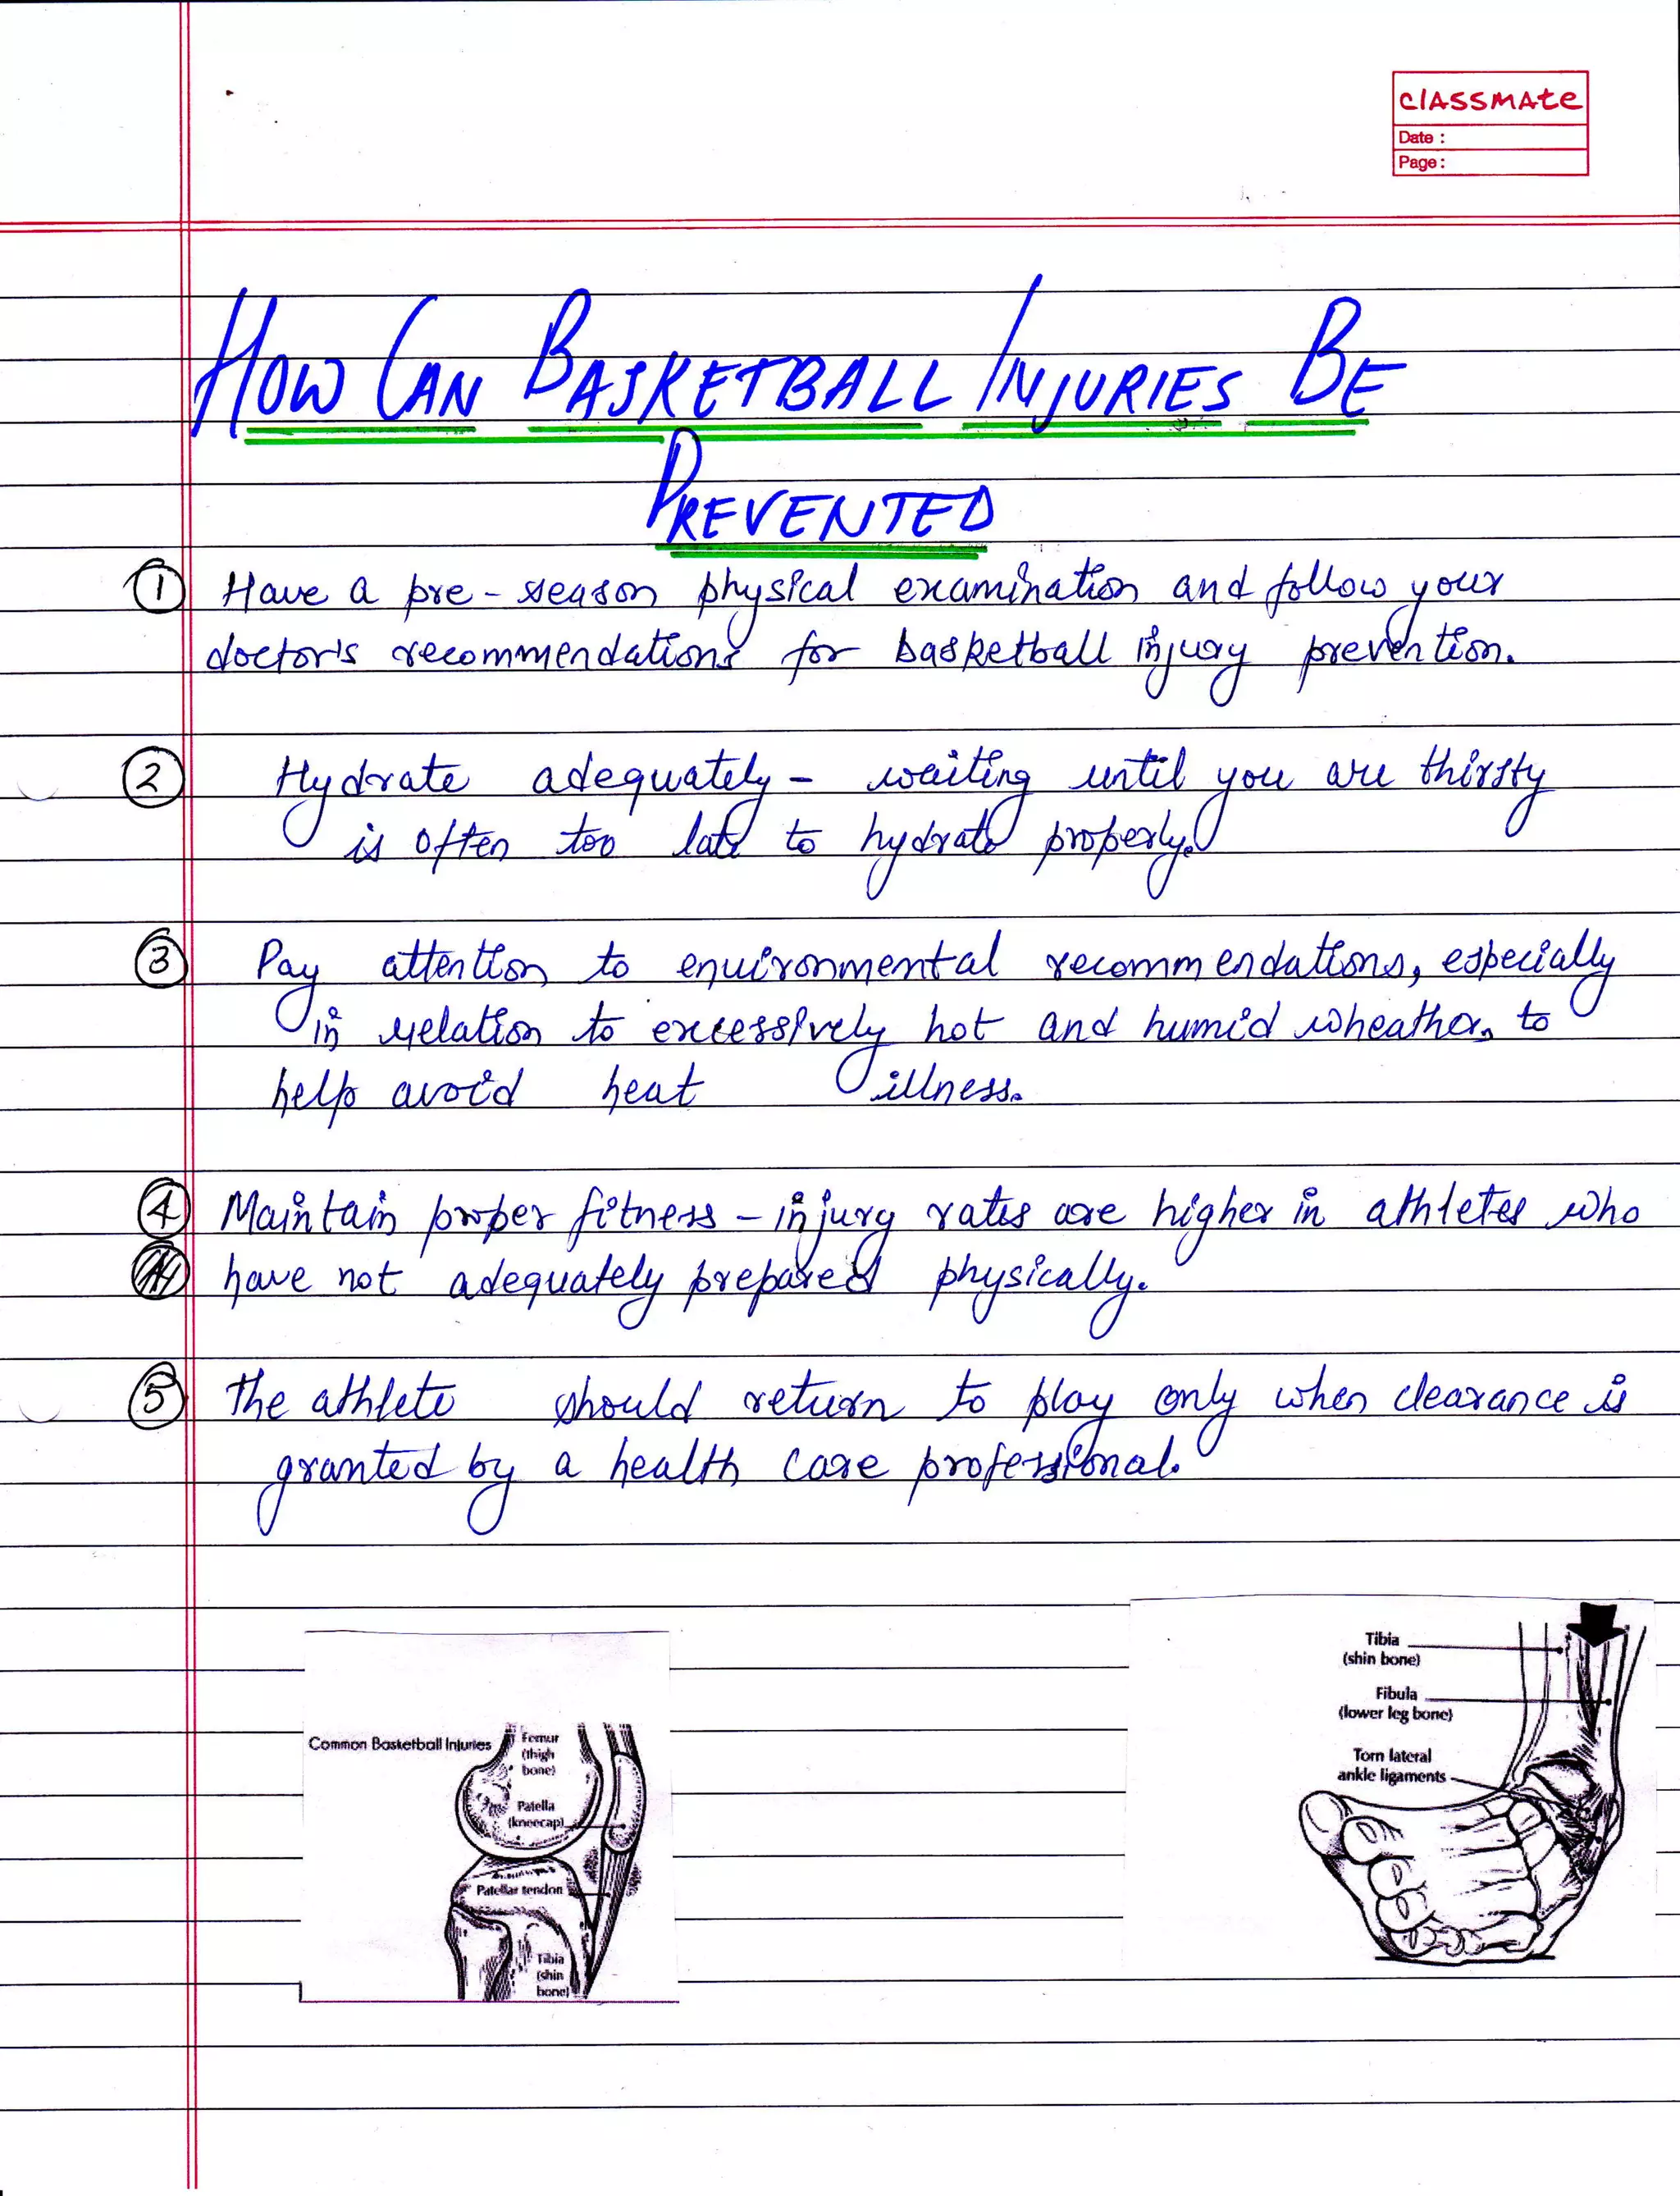 classmate
Date :
Page :
HOW CAN BASKETBALL INJURIES BE
PREVENTED
1 Have a pre-season physical examination and follow your
doctor's recommendations for basketball injury prevention.
2 Hydrate adequately - waiting until you are thirsty
is often too late to hydrate properly.
3 Pay attention to environmental recommendations, especially
in relation to excessively hot and humid wheather, to
help avoid heat illness.
4 Maintain proper fitness - injury rates are higher in athletes who
have not adequately prepared physically.
5 The athlete should return to play only when clearance is
granted by a health care professional.
Common Basketball Injuries
Femur
(thigh
bone)
Patella
(kneecap)
Patellar tendon
Tibia
(shin
bone)
Tibia
(shin bone)
Fibula
(lower leg bone)
Torn lateral
ankle ligaments